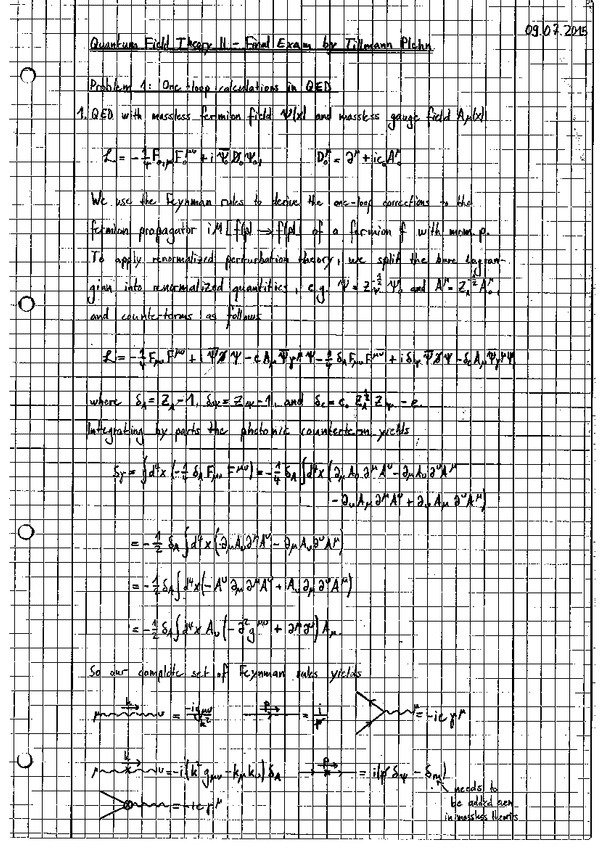 09.07.2015
Quantum Field Theory II - Final Exam by Tillmann Plehn
Problem 1: One-loop calculations in QED
1. QED with massless fermion field Ψ(x) and massless gauge field Aμ(x)
L = -1/4 F₀,μν F₀^μν + i Ψ̄₀ D̸₀ Ψ₀, D₀^μ = ∂^μ + ie₀A₀^μ
We use the Feynman rules to derive the one-loop corrections to the
fermion propagator iM[f(p) → f(p)] of a fermion f with mom. p.
To apply renormalized perturbation theory, we split the bare Lagran-
gian into renormalized quantities, e.g. Ψ = Z_Ψ^-1/2 Ψ₀ and A^μ = Z_A^-1/2 A₀^μ
and counter-terms as follows
L = -1/4 F_μν F^μν + i Ψ̄ ∂̸ Ψ - e A_μ Ψ̄ γ^μ Ψ - 1/4 δ_A F_μν F^μν + i δ_Ψ Ψ̄ ∂̸ Ψ - δ_e A_μ Ψ̄ γ^μ Ψ
where δ_A = Z_A - 1, δ_Ψ = Z_Ψ - 1, and δ_e = e₀ Z_A^1/2 Z_Ψ - e.
Integrating by parts the photonic counterterm yields
S_γ = ∫d⁴x (-1/4 δ_A F_μν F^μν) = -1/4 δ_A ∫d⁴x (∂_μ A_ν ∂^μ A^ν - ∂_μ A_ν ∂^ν A^μ
- ∂_ν A_μ ∂^μ A^ν + ∂_ν A_μ ∂^ν A^μ)
= -1/2 δ_A ∫d⁴x (∂_μ A_ν ∂^μ A^ν - ∂_μ A_ν ∂^ν A^μ)
= -1/2 δ_A ∫d⁴x (-A^ν ∂_μ ∂^μ A^ν + A_ν ∂_μ ∂^ν A^μ)
= -1/2 δ_A ∫d⁴x A_ν (-∂² g^μν + ∂^μ ∂^ν) A_μ.
So our complete set of Feynman rules yields
μ k ν = -i g_μν / k² p = i / p̸ μ = -ieγ^μ
μ k ν = -i(k² g_μν - k_μ k_ν) δ_A p = i(p̸ δ_Ψ - δ_m)
= -ieγ^μ
needs to
be added even
in massless theories